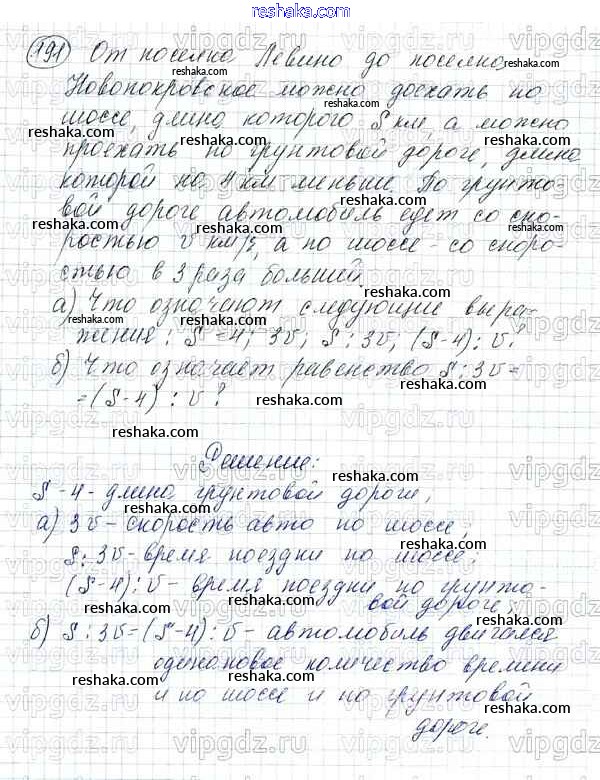 reshaka.com
191 От поселка Левино до поселка
Новопокровское можно доехать по
шоссе, длина которого S км, а можно
проехать по грунтовой дороге, длина
которой на 4 км меньше. По грунто-
вой дороге автомобиль едет со ско-
ростью v км/ч, а по шоссе - со скоро-
стью в 3 раза большей.
а) Что означают следующие выра-
жения: S - 4; 3v; S : 3v; (S-4) : v?
б) Что означает равенство S : 3v =
= (S-4) : v?
Решение:
S - 4 - длина грунтовой дороги,
а) 3v - скорость авто по шоссе;
S : 3v - время поездки по шоссе;
(S-4) : v - время поездки по грунто-
вой дороге;
б) S : 3v = (S-4) : v - автомобиль двигался
одинаковое количество времени
и по шоссе и по грунтовой
дороге.